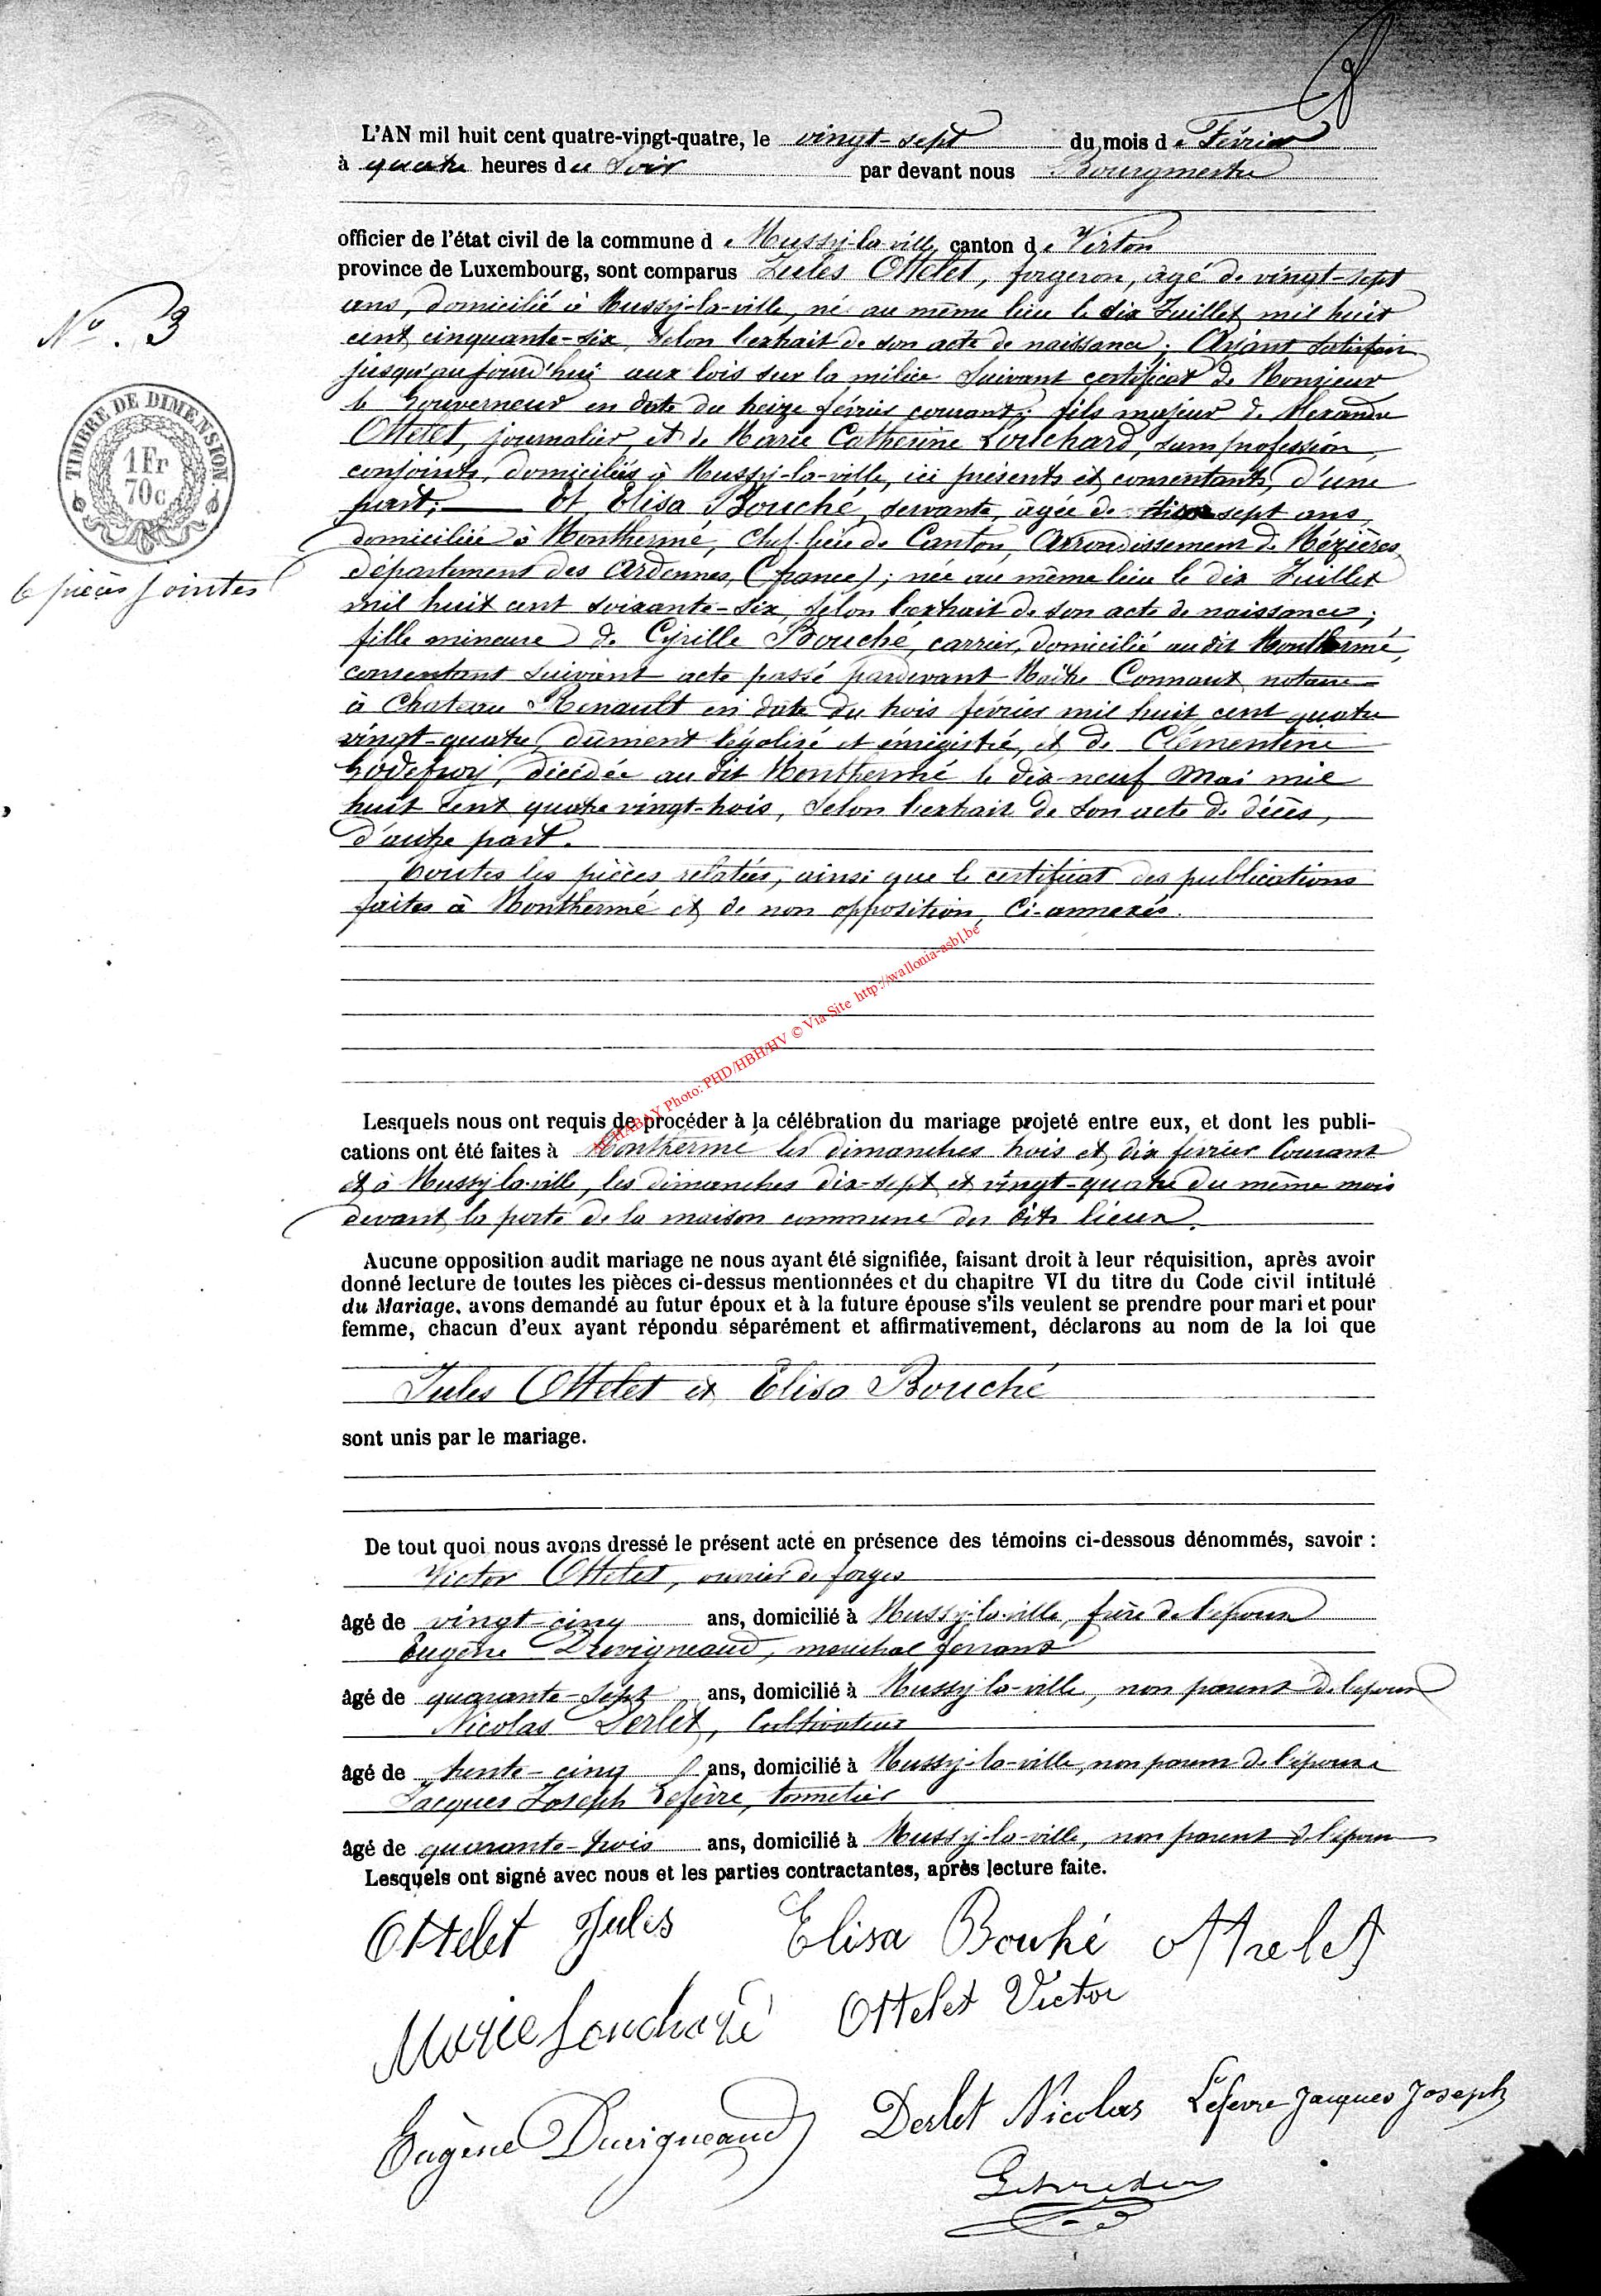 L'AN mil huit cent quatre-vingt-quatre, le vingt-sept du mois de Février
à quatre heures du soir par devant nous Bourgmestre
officier de l'état civil de la commune de Mussy-la-ville, canton de Virton
province de Luxembourg, sont comparus Jules Ottelet, forgeron, âgé de vingt-sept
ans, domicilié à Mussy-la-ville, né au même lieu le dix Juillet mil huit
cent cinquante-six, selon l'extrait de son acte de naissance; Ayant satisfait
jusqu'aujourd'hui aux lois sur la milice suivant certificat de Monsieur
le Gouverneur en date du treize février courant; fils majeur de Alexandre
Ottelet, journalier, et de Marie Catherine Louchard, sans profession,
conjoints, domiciliés à Mussy-la-ville, ici présents et consentants, d'une
part; Et Elisa Bouché, servante, âgée de dix sept ans,
domiciliée à Monthermé, Chef-lieu de Canton, Arrondissement de Mézières,
département des Ardennes, (france); née au même lieu le dix Juillet
mil huit cent soixante-six, selon l'extrait de son acte de naissance;
fille mineure de Cyrille Bouché, carrier, domicilié au dit Monthermé,
consentant suivant acte passé pardevant Maître Connaux, notaire
à Chateau Renault en date du trois février mil huit cent quatre
vingt-quatre, dûment légalisé et énrégistré, et de Clémentine
Godefroy, décédée au dit Monthermé le dix-neuf Mai mil
huit cent quatre vingt-trois, selon l'extrait de son acte de décès,
d'autre part.
Toutes les pièces relatées, ainsi que le certificat des publications
faites à Monthermé et de non opposition, Ci-annexés.
No. 3
TIMBRE DE DIMENSION
1 Fr
70c
6 pièces jointes
AF HABAY Photo: PHD/HBH/HV © Via Site http://wallonia-asbl.be
Lesquels nous ont requis de procéder à la célébration du mariage projeté entre eux, et dont les publi-
cations ont été faites à Monthermé les dimanches trois et dix février Courant
et à Mussy la-ville, les dimanches dix-sept et vingt-quatre du même mois
devant la porte de la maison commune des dits lieux.
Aucune opposition audit mariage ne nous ayant été signifiée, faisant droit à leur réquisition, après avoir
donné lecture de toutes les pièces ci-dessus mentionnées et du chapitre VI du titre du Code civil intitulé
du Mariage, avons demandé au futur époux et à la future épouse s'ils veulent se prendre pour mari et pour
femme, chacun d'eux ayant répondu séparément et affirmativement, déclarons au nom de la loi que
Jules Ottelet et Elisa Bouché
sont unis par le mariage.
De tout quoi nous avons dressé le présent acte en présence des témoins ci-dessous dénommés, savoir :
Victor Ottelet, ouvrier de forges
âgé de vingt-cinq ans, domicilié à Mussy-la-ville, frère de l'époux
Eugène Duvigneaud, maréchal ferrant
âgé de quarante-sept ans, domicilié à Mussy la-ville, non parent de l'époux
Nicolas Derlet, Cultivateur
âgé de trente-cinq ans, domicilié à Mussy-la-ville, non parent de l'épouse
Jacques Joseph Lefèvre, tonnelier
âgé de quarante-trois ans, domicilié à Mussy-la-ville, non parent de l'époux
Lesquels ont signé avec nous et les parties contractantes, après lecture faite.
Ottelet Jules Elisa Bouhé
Marie Louchard Ottelet Victor
Eugène Duvigneaud Derlet Nicolas Lefevre Jacques Joseph